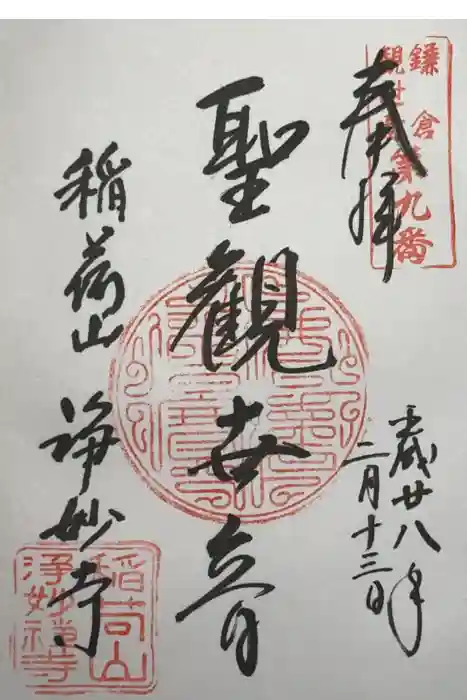 鎌倉
觀世音
第九番
奉拝
平成廿八年
二月十三日
聖觀世音
稲荷山 淨妙寺
稲荷山
淨妙禅寺